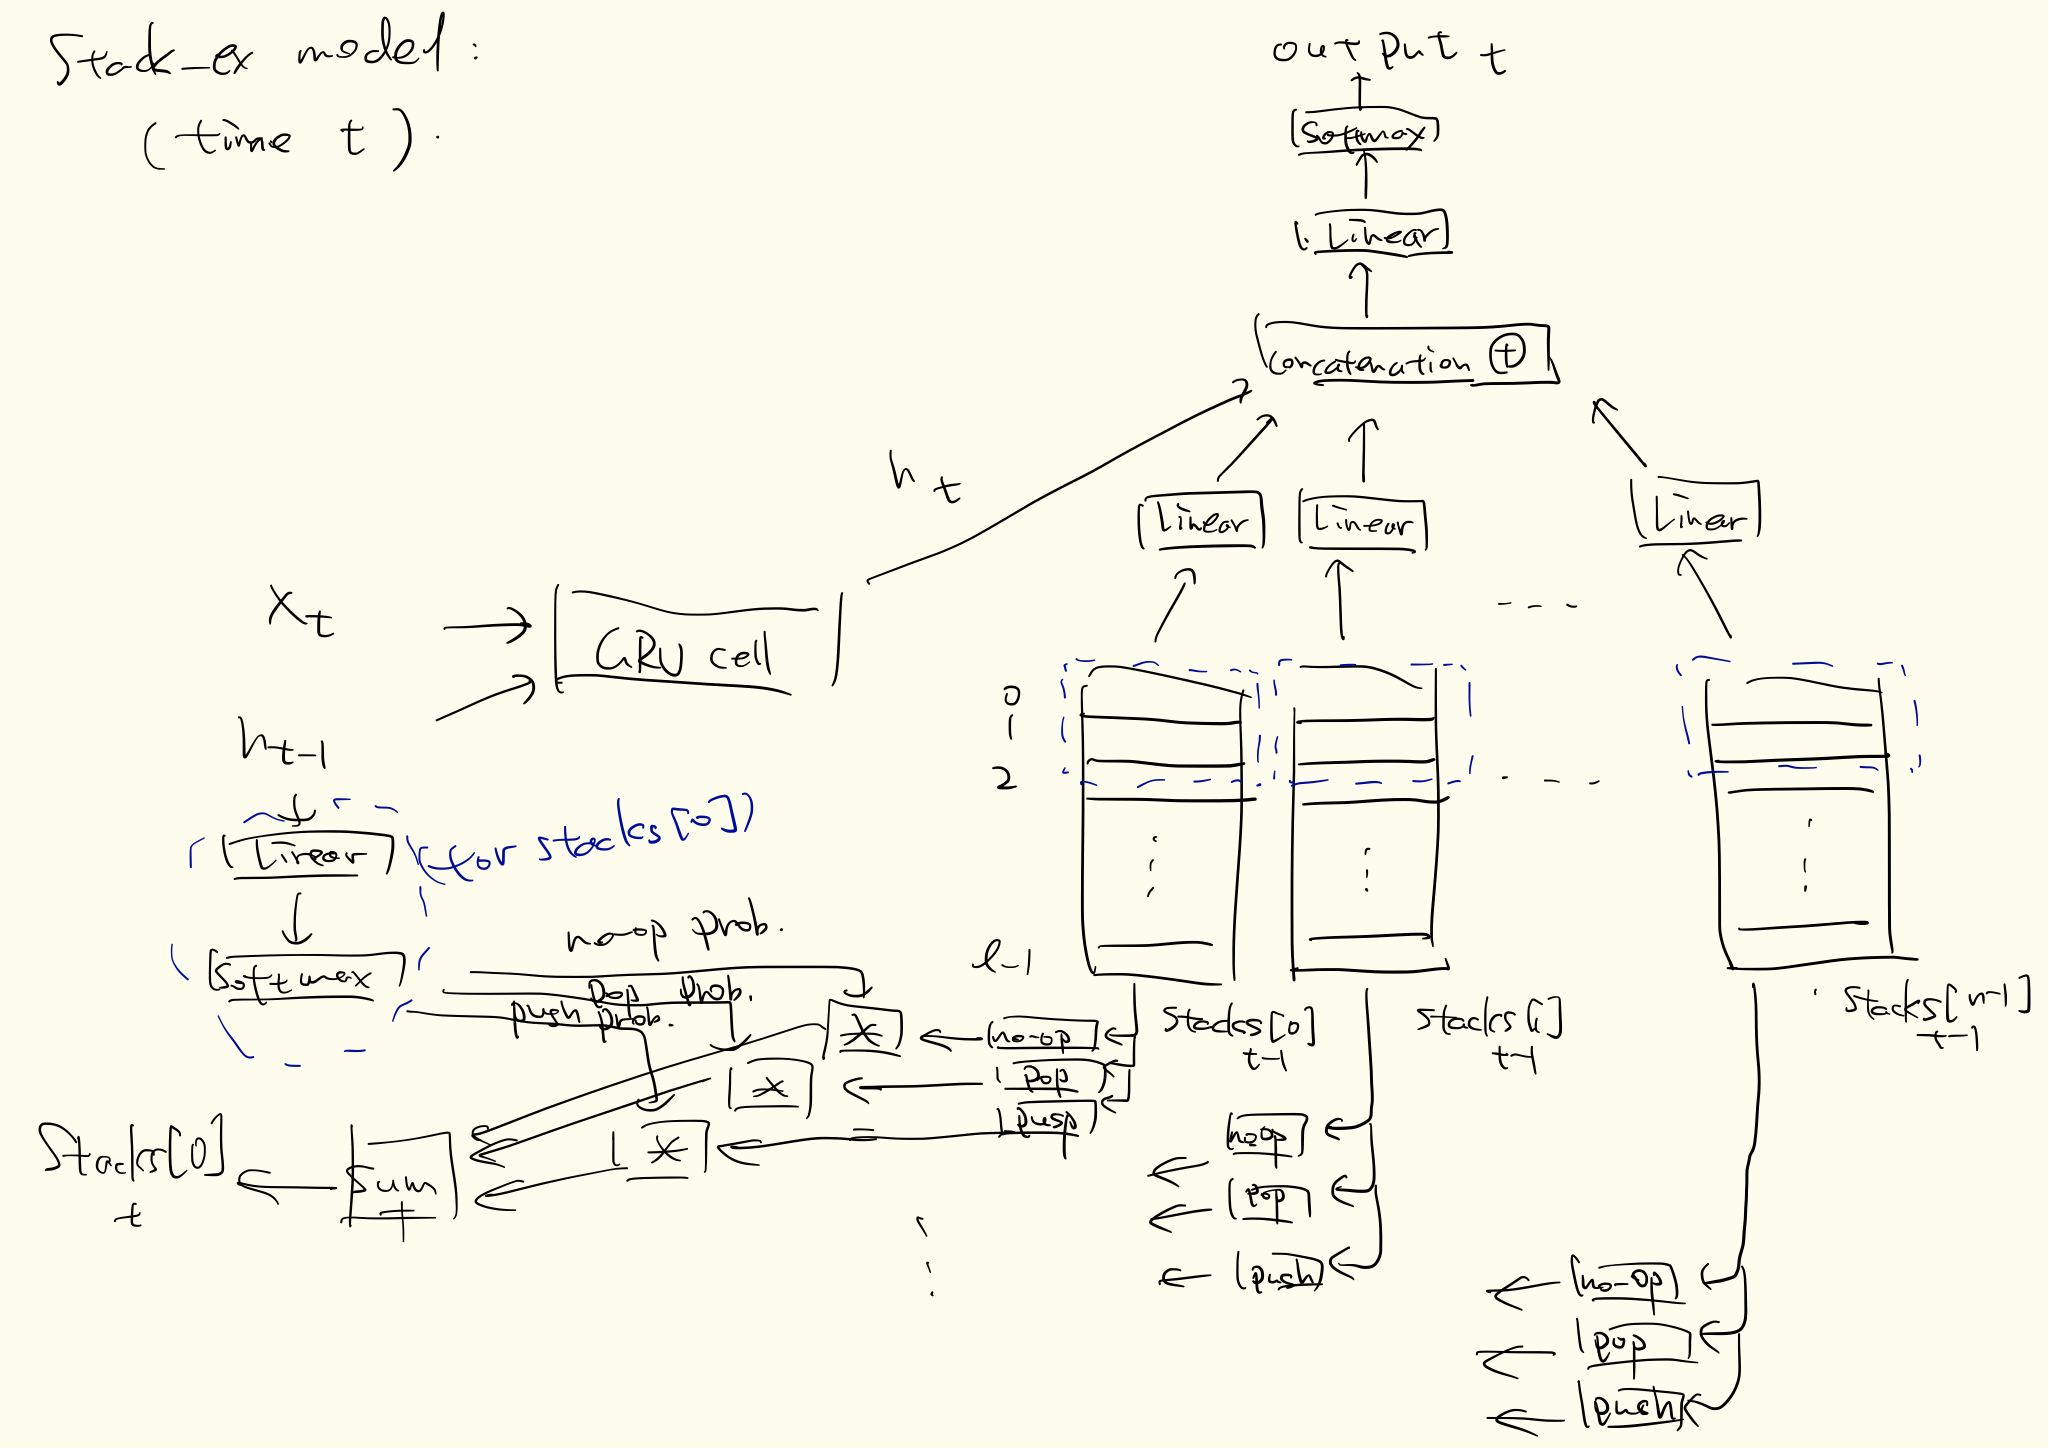 Stack_ex model:
(time t).
output t
Softmax
Linear
concatenation +
h t
Linear
Linear
Linear
x t
GRU cell
h t-1
0
1
2
Linear
(for stacks[0])
Softmax
no-op prob.
pop prob.
push prob.
l-1
stacks[0] t-1
stacks[i] t-1
stacks[n-1] t-1
*
no-op
*
pop
*
pusp
Stacks[0] t
Sum
+
noop
pop
push
no-op
pop
push